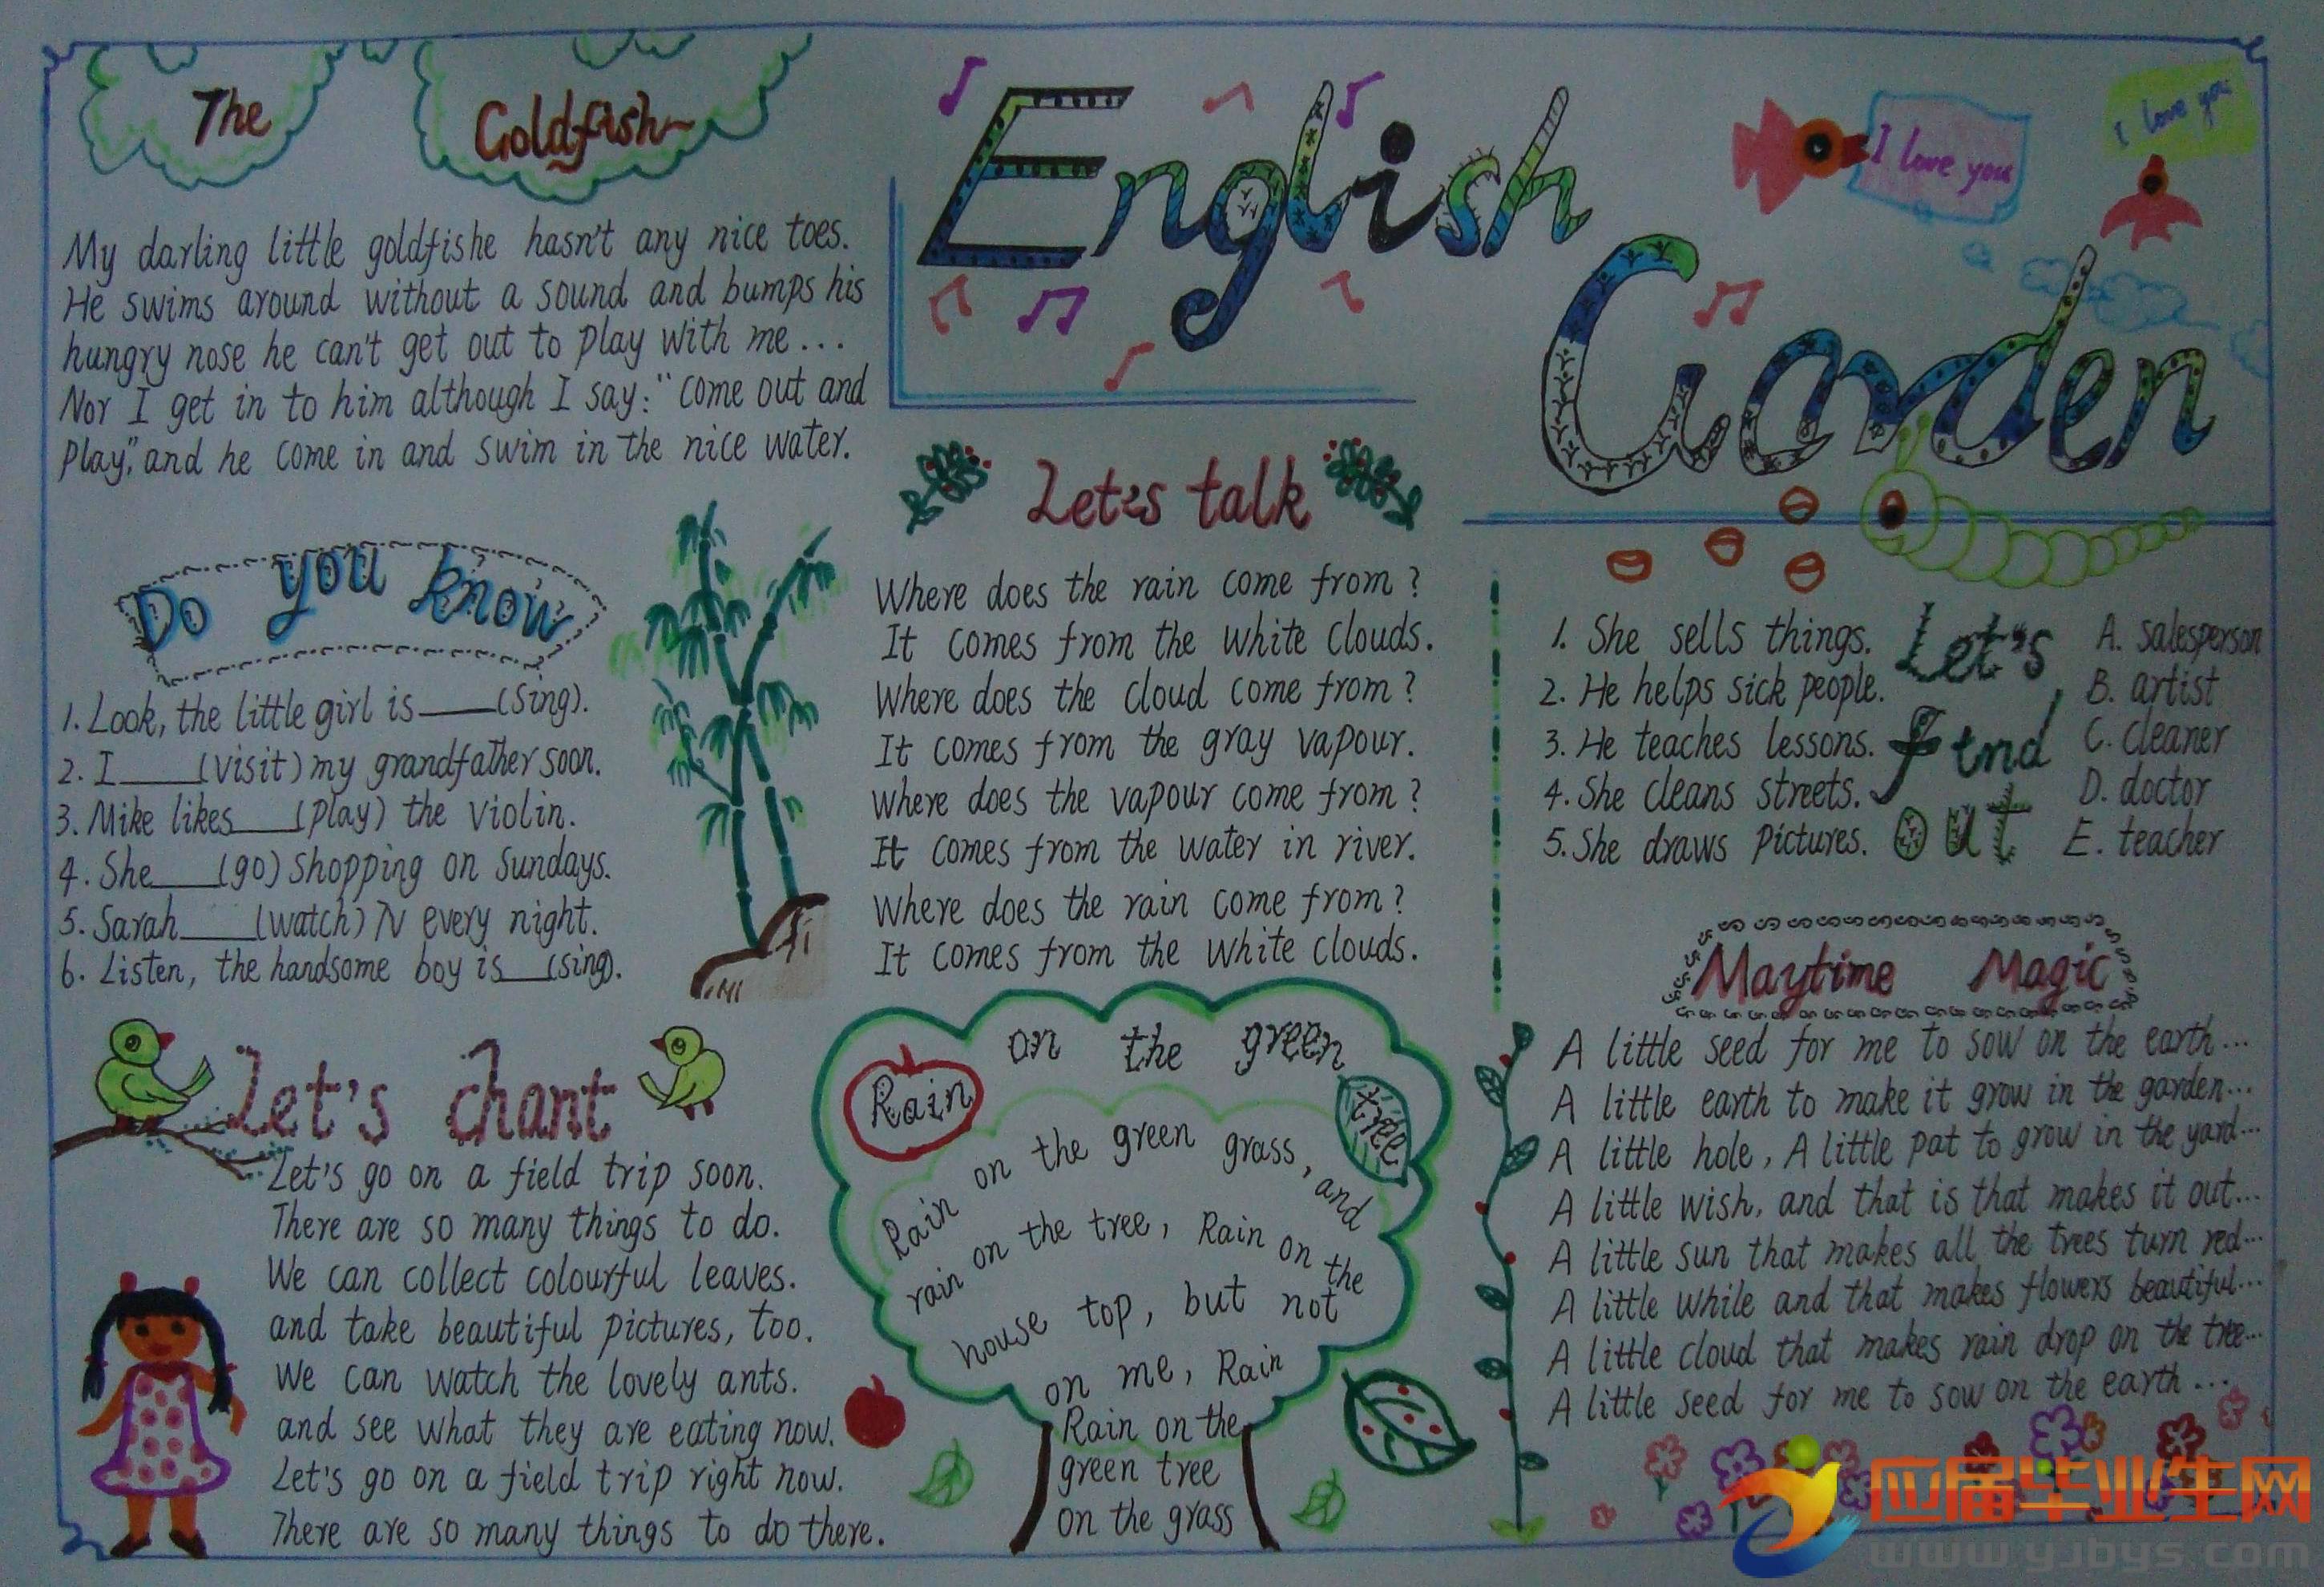 The Goldfish
My darling little goldfishe hasn't any nice toes.
He swims around without a sound and bumps his
hungry nose he can't get out to play with me...
Nor I get in to him although I say: "come out and
Play", and he come in and swim in the nice water.
English
Garden
I love you
I love you
Do you know
1. Look, the little girl is____(sing).
2. I____(visit) my grandfather soon.
3. Mike likes____(play) the violin.
4. She____(go) shopping on Sundays.
5. Sarah____(watch) TV every night.
6. Listen, the handsome boy is___(sing).
Let's chant
Let's go on a field trip soon.
There are so many things to do.
We can collect colourful leaves.
and take beautiful pictures, too.
We can watch the lovely ants.
and see what they are eating now.
Let's go on a field trip right now.
There are so many things to do there.
Let's talk
Where does the rain come from?
It comes from the white clouds.
Where does the cloud come from?
It comes from the gray vapour.
Where does the vapour come from?
It comes from the water in river.
Where does the rain come from?
It comes from the white clouds.
Rain on the green tree
Rain on the green grass, and
rain on the tree, Rain on the
house top, but not
on me, Rain
Rain on the
green tree
on the grass
Let's
Find
out
1. She sells things.
2. He helps sick people.
3. He teaches lessons.
4. She cleans streets.
5. She draws pictures.
A. salesperson
B. artist
C. cleaner
D. doctor
E. teacher
Maytime Magic
A little seed for me to sow on the earth...
A little earth to make it grow in the garden...
A little hole, A little pat to grow in the yard...
A little wish, and that is that makes it out...
A little sun that makes all the trees turn red...
A little while and that makes flowers beautiful...
A little cloud that makes rain drop on the tree...
A little seed for me to sow on the earth...
应届毕业生网
www.yjbys.com